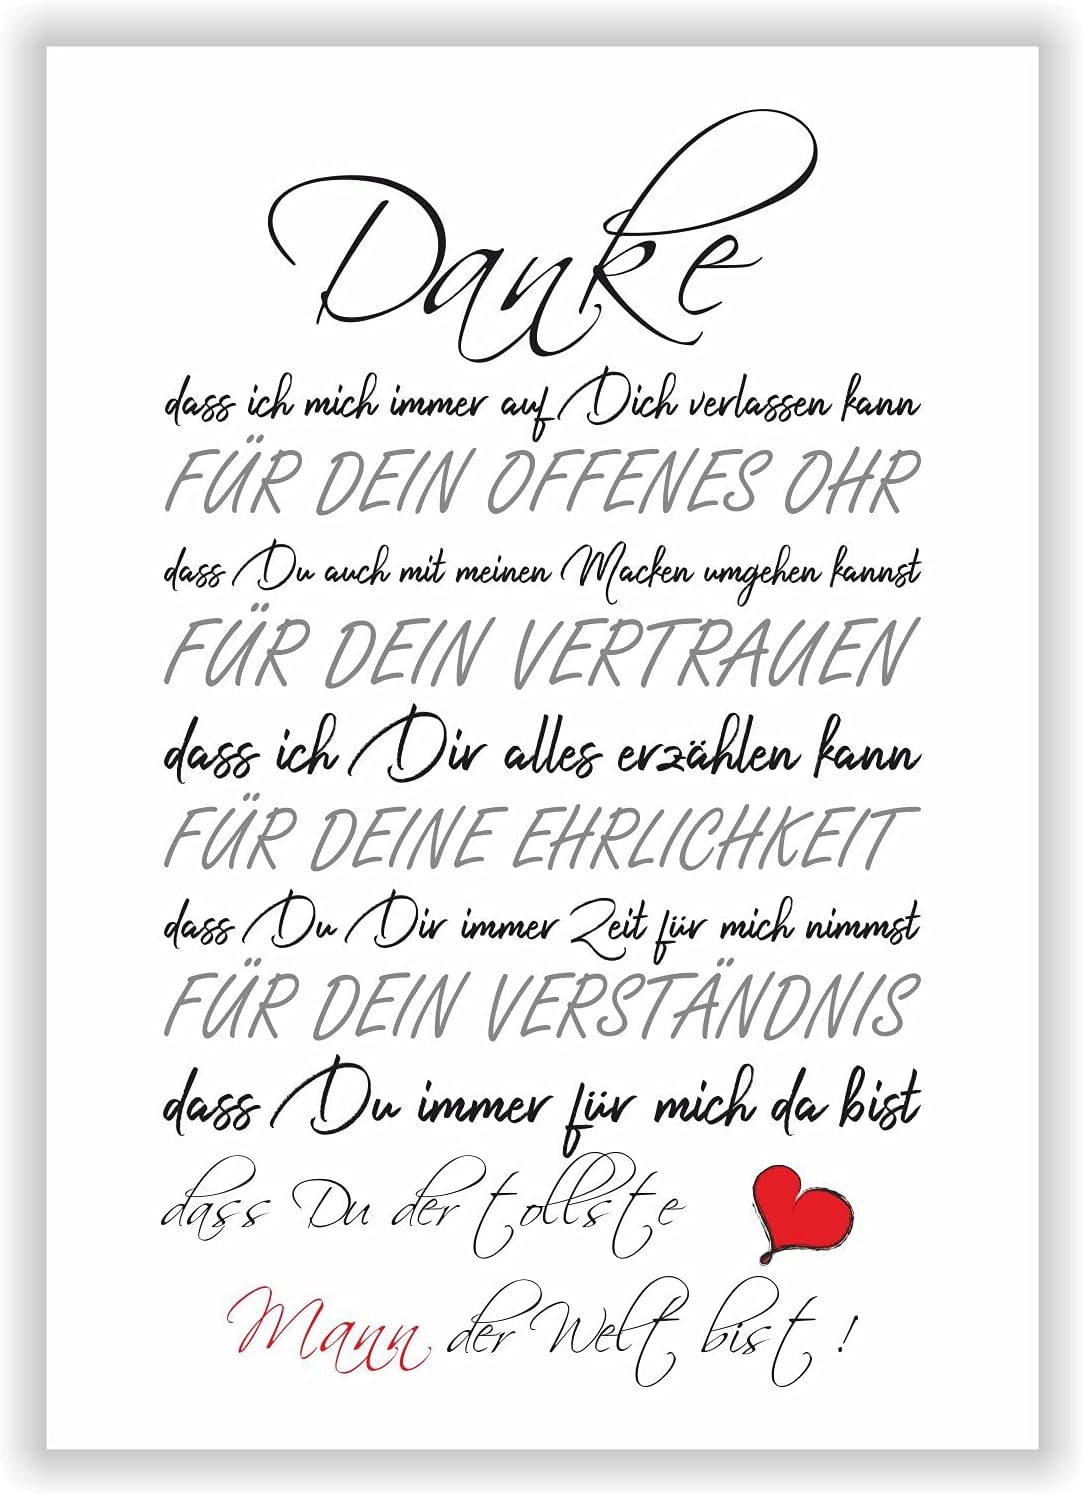 Danke
dass ich mich immer auf Dich verlassen kann
FÜR DEIN OFFENES OHR
dass Du auch mit meinen Macken umgehen kannst
FÜR DEIN VERTRAUEN
dass ich Dir alles erzählen kann
FÜR DEINE EHRLICHKEIT
dass Du Dir immer Zeit für mich nimmst
FÜR DEIN VERSTÄNDNIS
dass Du immer für mich da bist
dass Du der tollste
Mann der Welt bist !